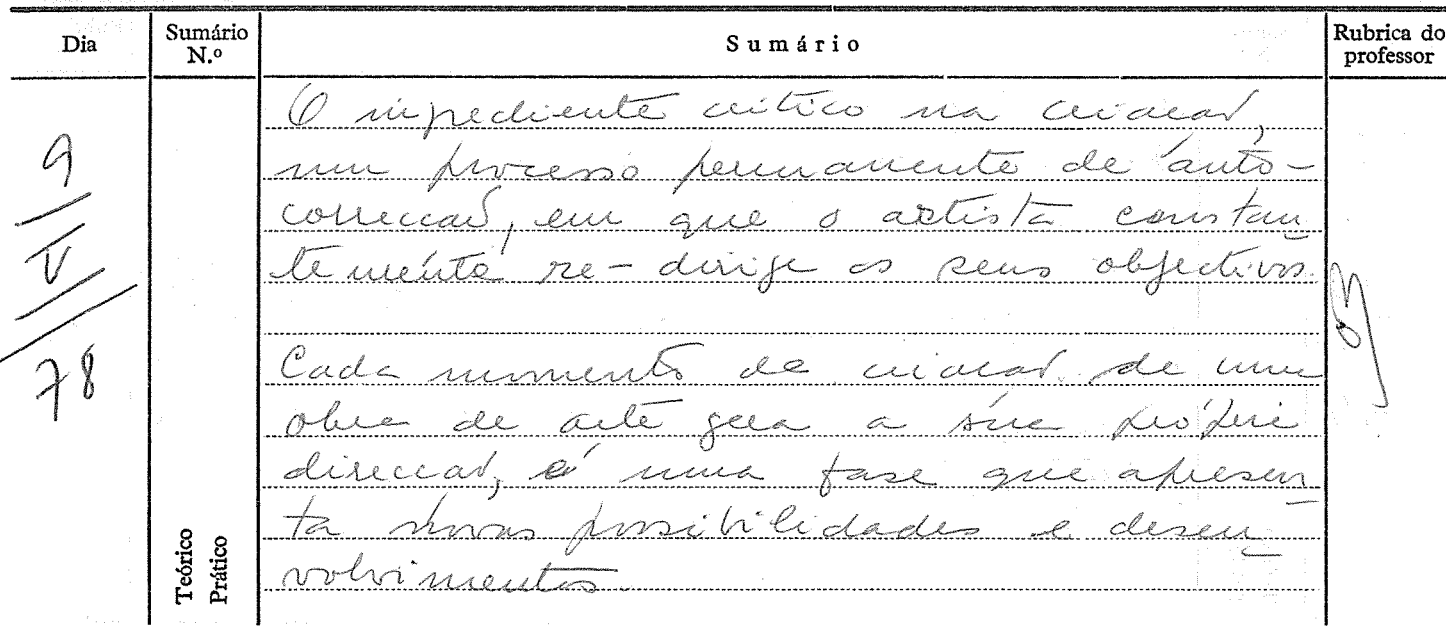 Dia
Sumário N.º
Sumário
Rubrica do professor
9
V
78
O ingrediente crítico na criação,
num processo permanente de auto-
correcção, em que o artista constan
temente re-dirige os seus objectivos.
Cada momento de criação de uma
obra de arte gera a sua própria
direcção, é uma fase que apresen
ta novas possibilidades e desen
volvimentos.
Teórico
Prático